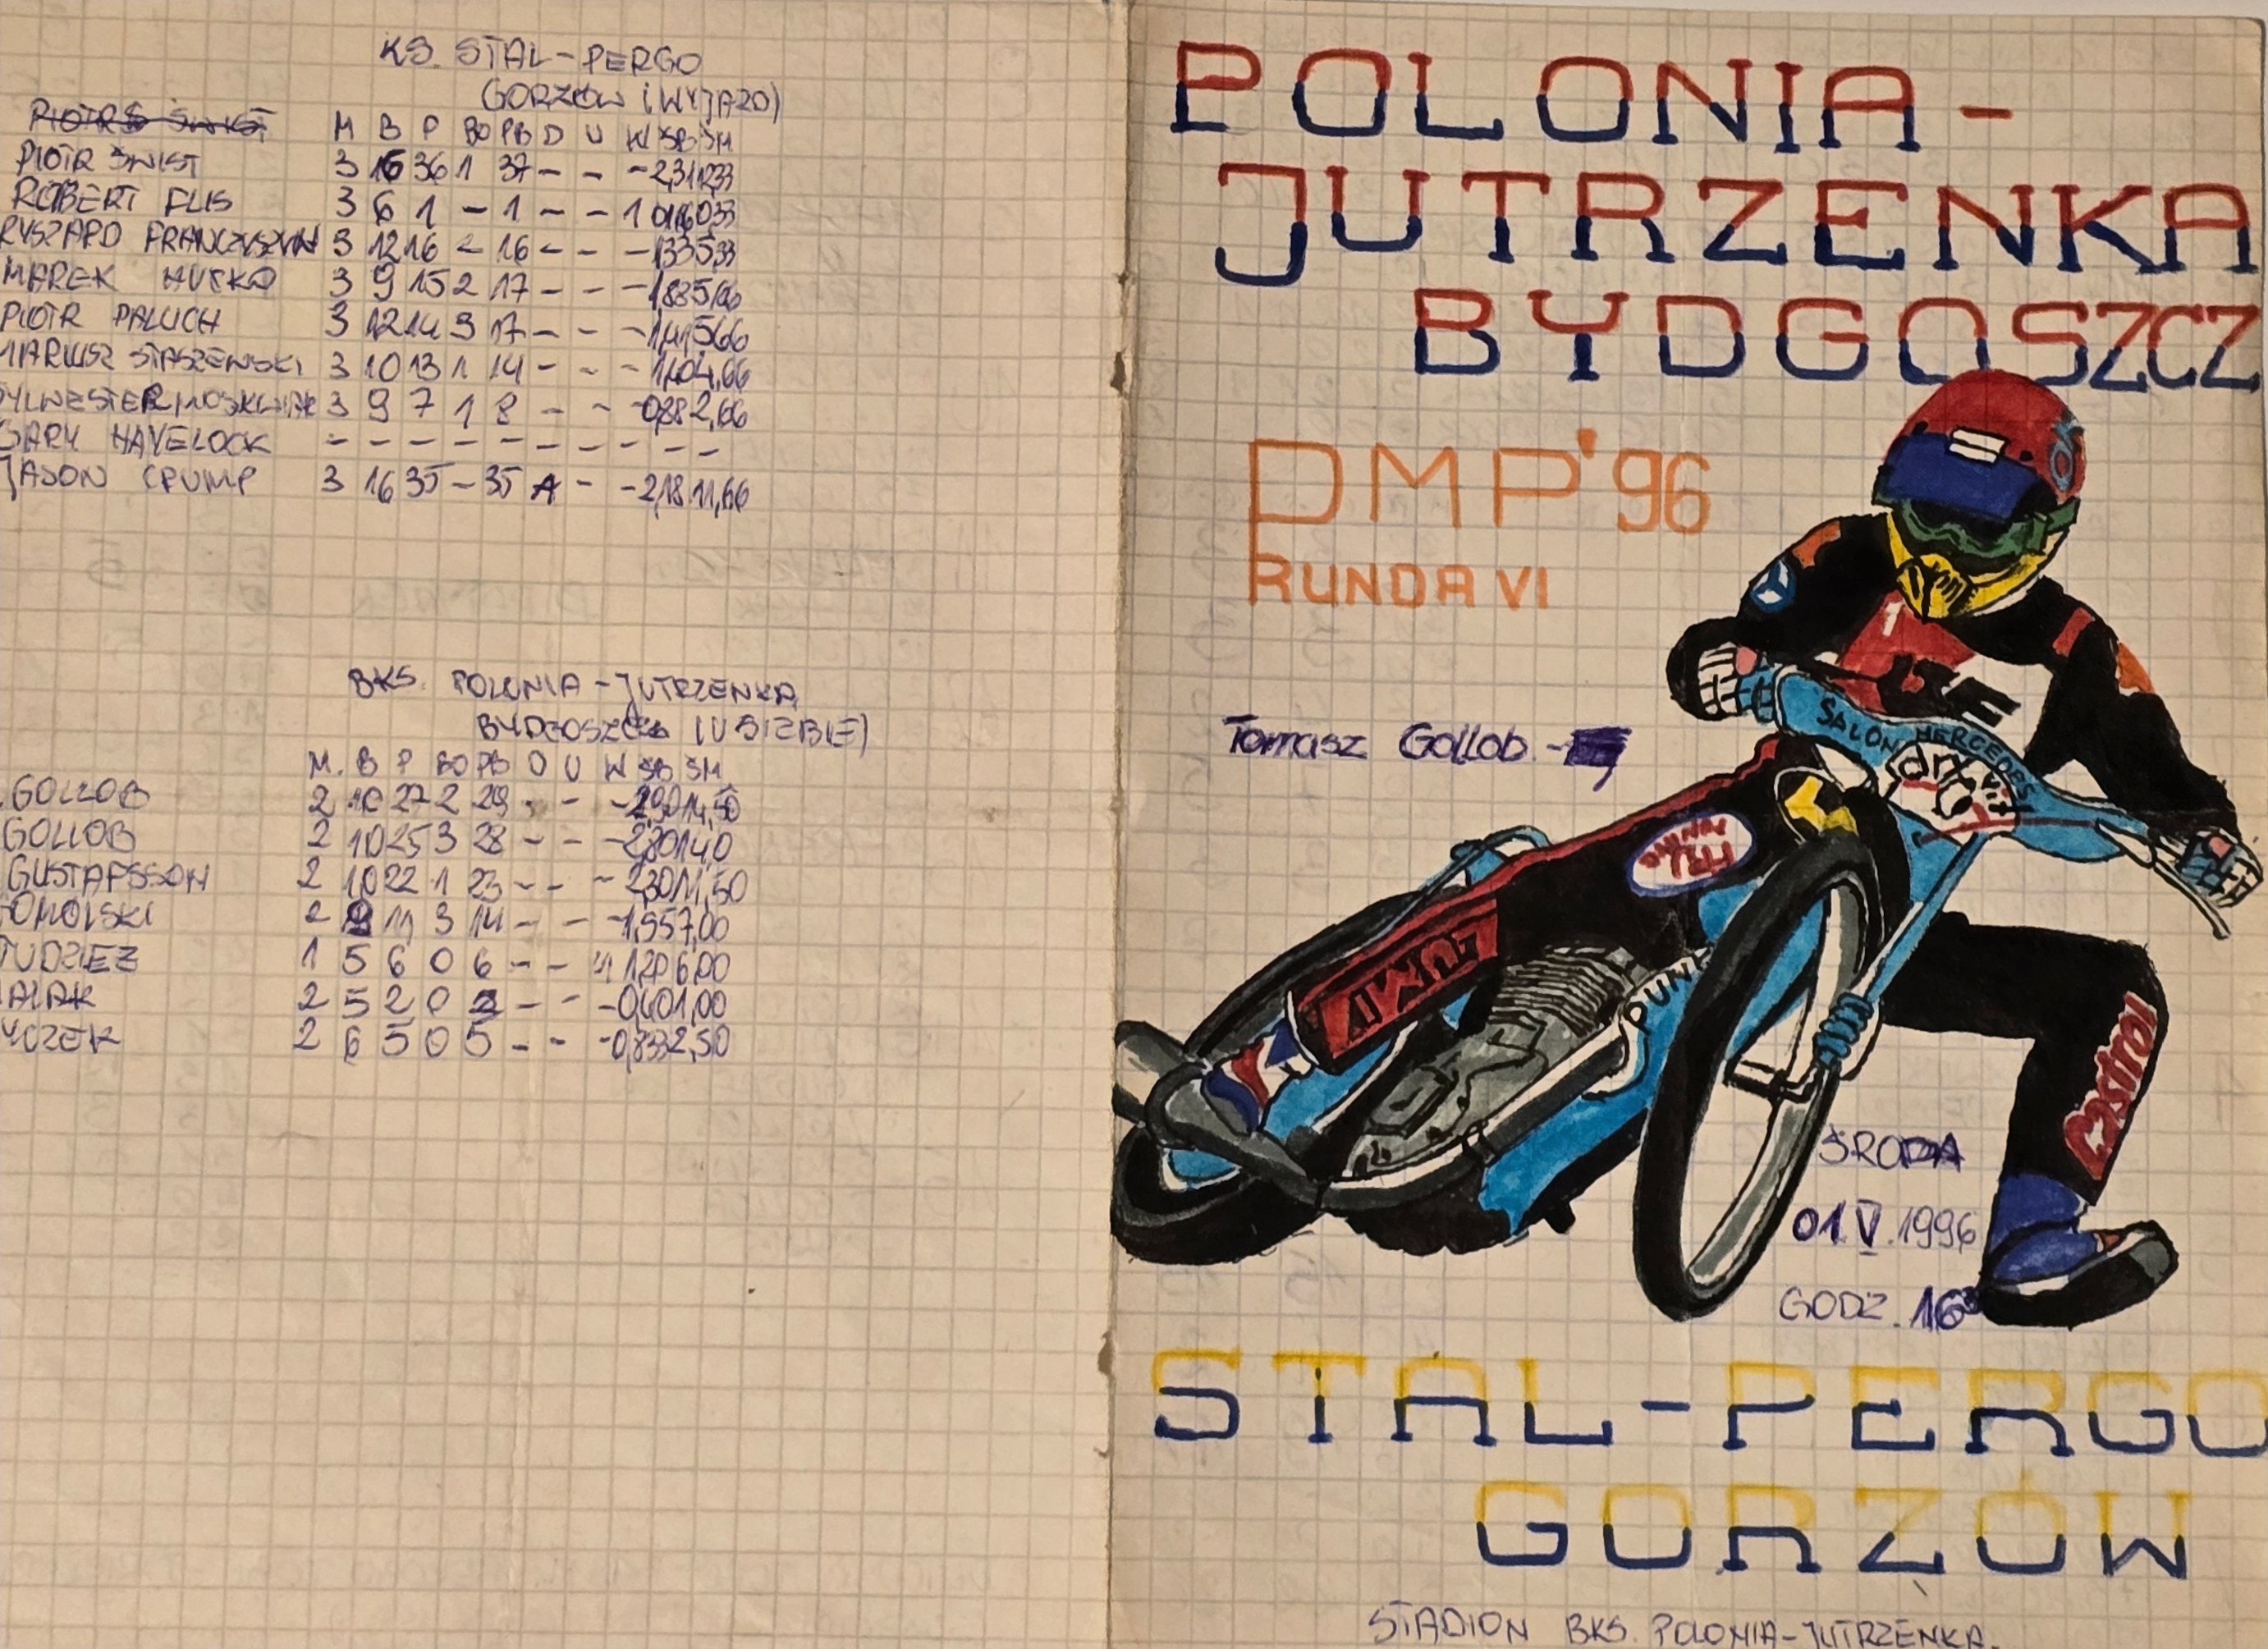 KS. STAL-PERGO
GORZÓW (WYJAZD)
M B P BO PB D U W ŚB ŚM
PIOTR ŚWIST 3 16 36 1 37 - - - 2,31 12,33
ROBERT FLIS 3 6 1 - 1 - - 1 0,16 0,33
RYSZARD FRANCZYSZYN 3 12 16 - 16 - - - 1,33 5,33
MAREK HUĆKO 3 9 15 2 17 - - - 1,88 5,66
PIOTR PALUCH 3 12 14 3 17 - - - 1,41 5,66
MARIUSZ STASZEWSKI 3 10 13 1 14 - - - 1,40 4,66
SYLWESTER MOSKWIAK 3 9 7 1 8 - - - 0,88 2,66
GARY HAVELOCK - - - - - - - - - -
JASON CRUMP 3 16 35 - 35 1 - - 2,18 11,66
BKS. POLONIA-JUTRZENKA
BYDGOSZCZ (U SIEBIE)
M. B P BO PB D U W ŚB ŚM
GOLLOB 2 10 27 2 29 - - - 2,90 14,50
GOLLOB 2 10 25 3 28 - - - 2,80 14,0
GUSTAFSSON 2 10 22 1 23 - - - 2,30 11,50
OMÓLSKI 2 9 11 3 14 - - - 1,55 7,00
UDZIEŻ 1 5 6 0 6 - - 1,20 6,00
ALAK 2 5 2 0 2 - - - 0,40 1,00
YCZEK 2 6 5 0 5 - - - 0,833 2,50
POLONIA-
JUTRZENKA
BYDGOSZCZ
DMP'96
RUNDA VI
Tomasz Gollob -
SALON MERCEDES
Castrol
ŚRODA
01.V.1996
GODZ. 16
STAL-PERGO
GORZÓW
STADION BKS. POLONIA-JUTRZENKA.